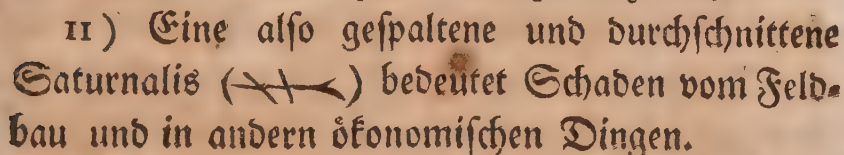 11) Eine alſo geſpaltene und durchſchnittene
Saturnalis () bedeutet Schaden vom Feld⸗
bau und in andern ökonomiſchen Dingen.